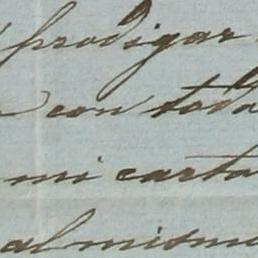 prodigar
con toda
mi carta
al mismo